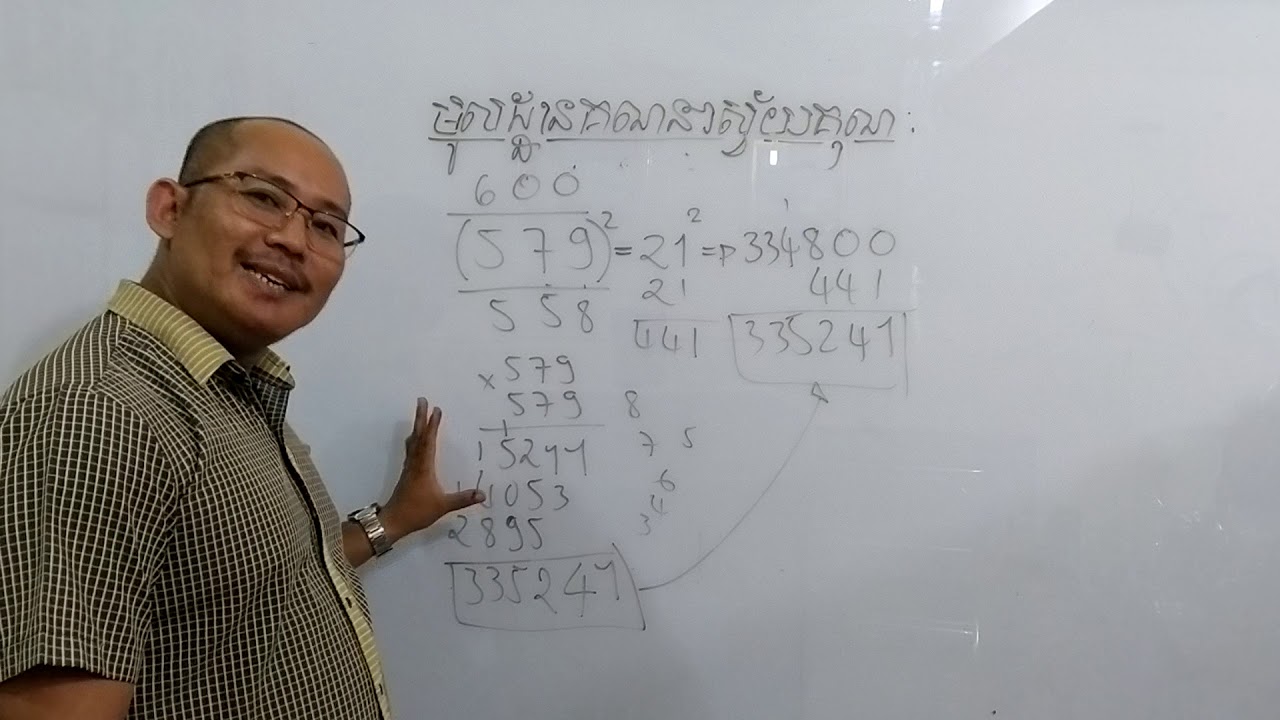 មូលដ្ឋានគណនាស្វ័យគុណ :
600
(579)² = 21² => 334800
21 441
558 441 335241
× 579
579 8
15211 7 5
11053 6
4
2895 3
335241